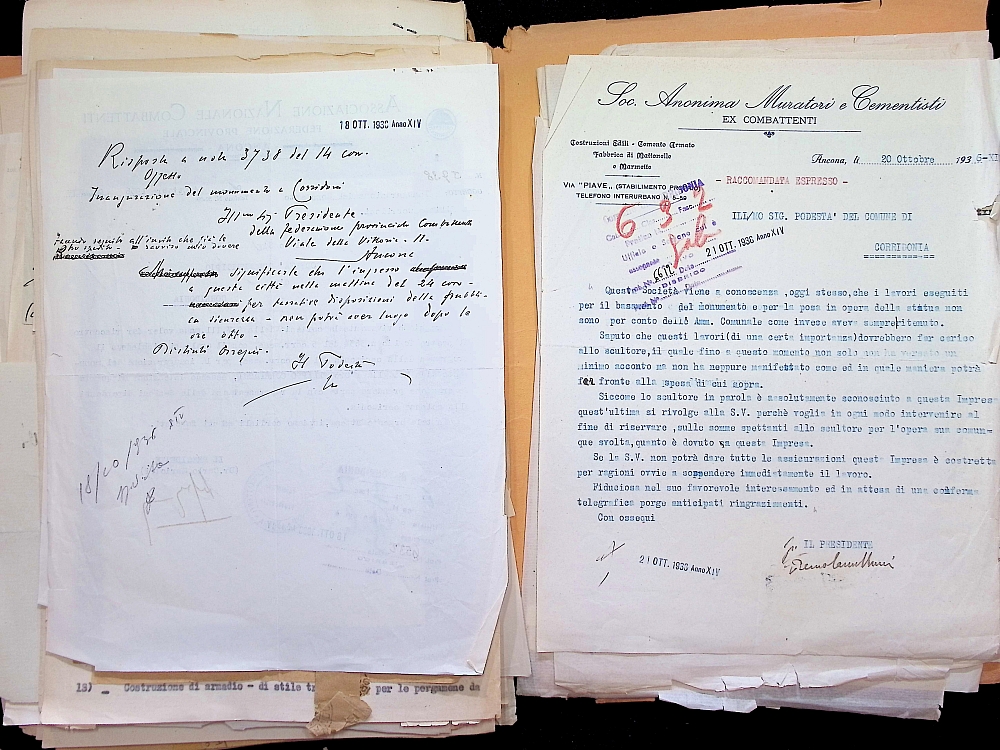 18 OTT. 1936 Anno XIV
Risposta a nota 3738 del 14 corr.
Oggetto
Inaugurazione del monumento a Corridoni
Ill/mo Sig. Presidente
della federazione provinciale Combattenti
Viale della Vittoria - 11.
Ancona
Facendo seguito all'invito che già le
significarle che l'ingresso
a questa città nella mattina del 24 corr.
per tassative disposizioni della pubbli-
ca sicurezza - non potrà aver luogo dopo le
ore otto.
Distinti ossequi.
Il Podestà
18/10/936 XIV
18) _ Costruzione di armadio - di stile
per le pergamene da
Soc. Anonima Muratori e Cementisti
EX COMBATTENTI
Costruzioni Edili - Cemento Armato
Fabbrica di Mattonelle
e Marmette
VIA "PIAVE" (STABILIMENTO PROPRIO)
TELEFONO INTERURBANO N.
Ancona, li 20 Ottobre 1936-XI
- RACCOMANDATA ESPRESSO -
632
ILL/MO SIG. PODESTA' DEL COMUNE DI
CORRIDONIA
========
21 OTT. 1936 Anno XIV
Questa Società viene a conoscenza ,oggi stesso,che i lavori eseguiti
per il basamento del monumento e per la posa in opera della statua non
sono per conto delle Amm. Comunale come invece aveva sempre ritenuto.
Saputo che questi lavori(di una certa importanza)dovrebbero far carico
allo scultore,il quale fino a questo momento non solo non ha versato un
minimo acconto ma non ha neppure manifestato come ed in quale maniera potrà
far fronte alla spesa di cui sopra.
Siccome lo scultore in parola è assolutamente sconosciuto a questa Impres
quest'ultima si rivolge alla S.V. perchè voglia in ogni modo intervenire al
fine di riservare ,sulle somme spettanti allo scultore per l'opera sua comun-
que svolta,quanto è dovuto a questa Impresa.
Se la S.V. non potrà dare tutte le assicurazioni questa Impresa è costretta
per ragioni ovvie a sospendere immediatamente il lavoro.
Fiduciosa nel suo favorevole interessamento ed in attesa di una conferma
telegrafica porge anticipati ringraziamenti.
Con ossequi
IL PRESIDENTE
21 OTT. 1936 Anno XIV